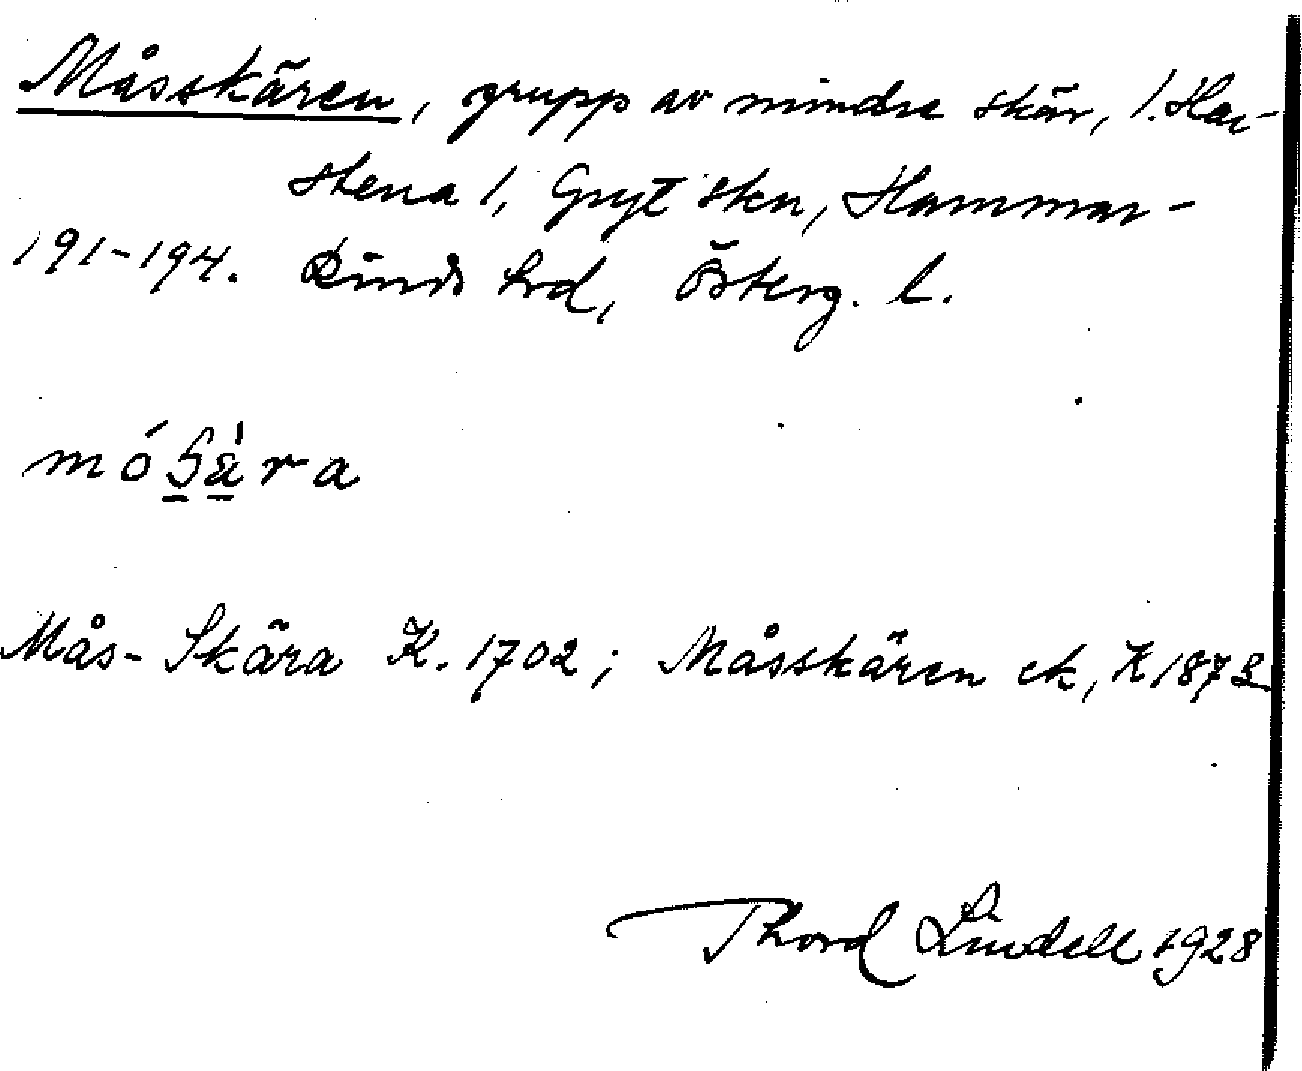 Måsskären, grupp av mindre skär, l. Har-
stena l, Gryt skn, Hammar-
191-194. kinds hrd, Österg. l.
Mås-Skära K. 1702; Måsskären ek, K 1872
Thord Lindell 1928